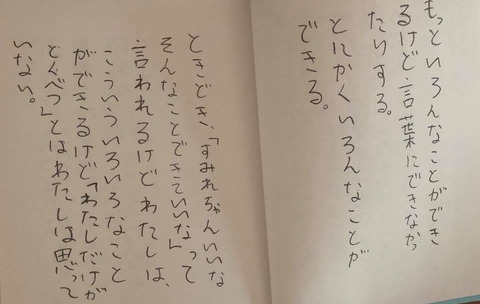 もっといろんなことができ
るけど言葉にできなかっ
たりする。
とにかくいろんなことが
できる。
ときどき、「すみれちゃんいいな
そんなことできていいな」って
言われるけどわたしは、
こういういろいろなこと
ができるけど「わたしだけが
とくべつ」とはわたしは思って
いない。